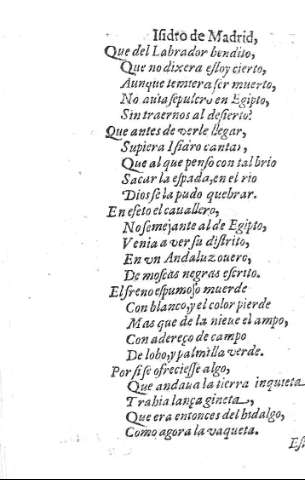 Isidro de Madrid,
Que del Labrador bendito,
Que no dixera estoy cierto,
Aunque temiera ser muerto,
No auia sepulcro en Egipto,
Sin traernos al desierto?
Que antes de verle llegar,
Supiera Isidro cantar,
Que al que penso con tal brio
Sacar la espada, en el rio
Dios se la pudo quebrar.
En efeto el cauallero,
No semejante al de Egipto,
Venia a ver su distrito,
En vn Andaluz ouero,
De moscas negras escrito.
El freno espumoso muerde
Con blanco, y el color pierde
Mas que de la nieue el ampo,
Con adereço de campo
De lobo, y palmilla verde.
Por si se ofreciesse algo,
Que andaua la tierra inquieta
Trahia lança gineta,
Que era entonces del hidalgo,
Como agora la vaqueta.